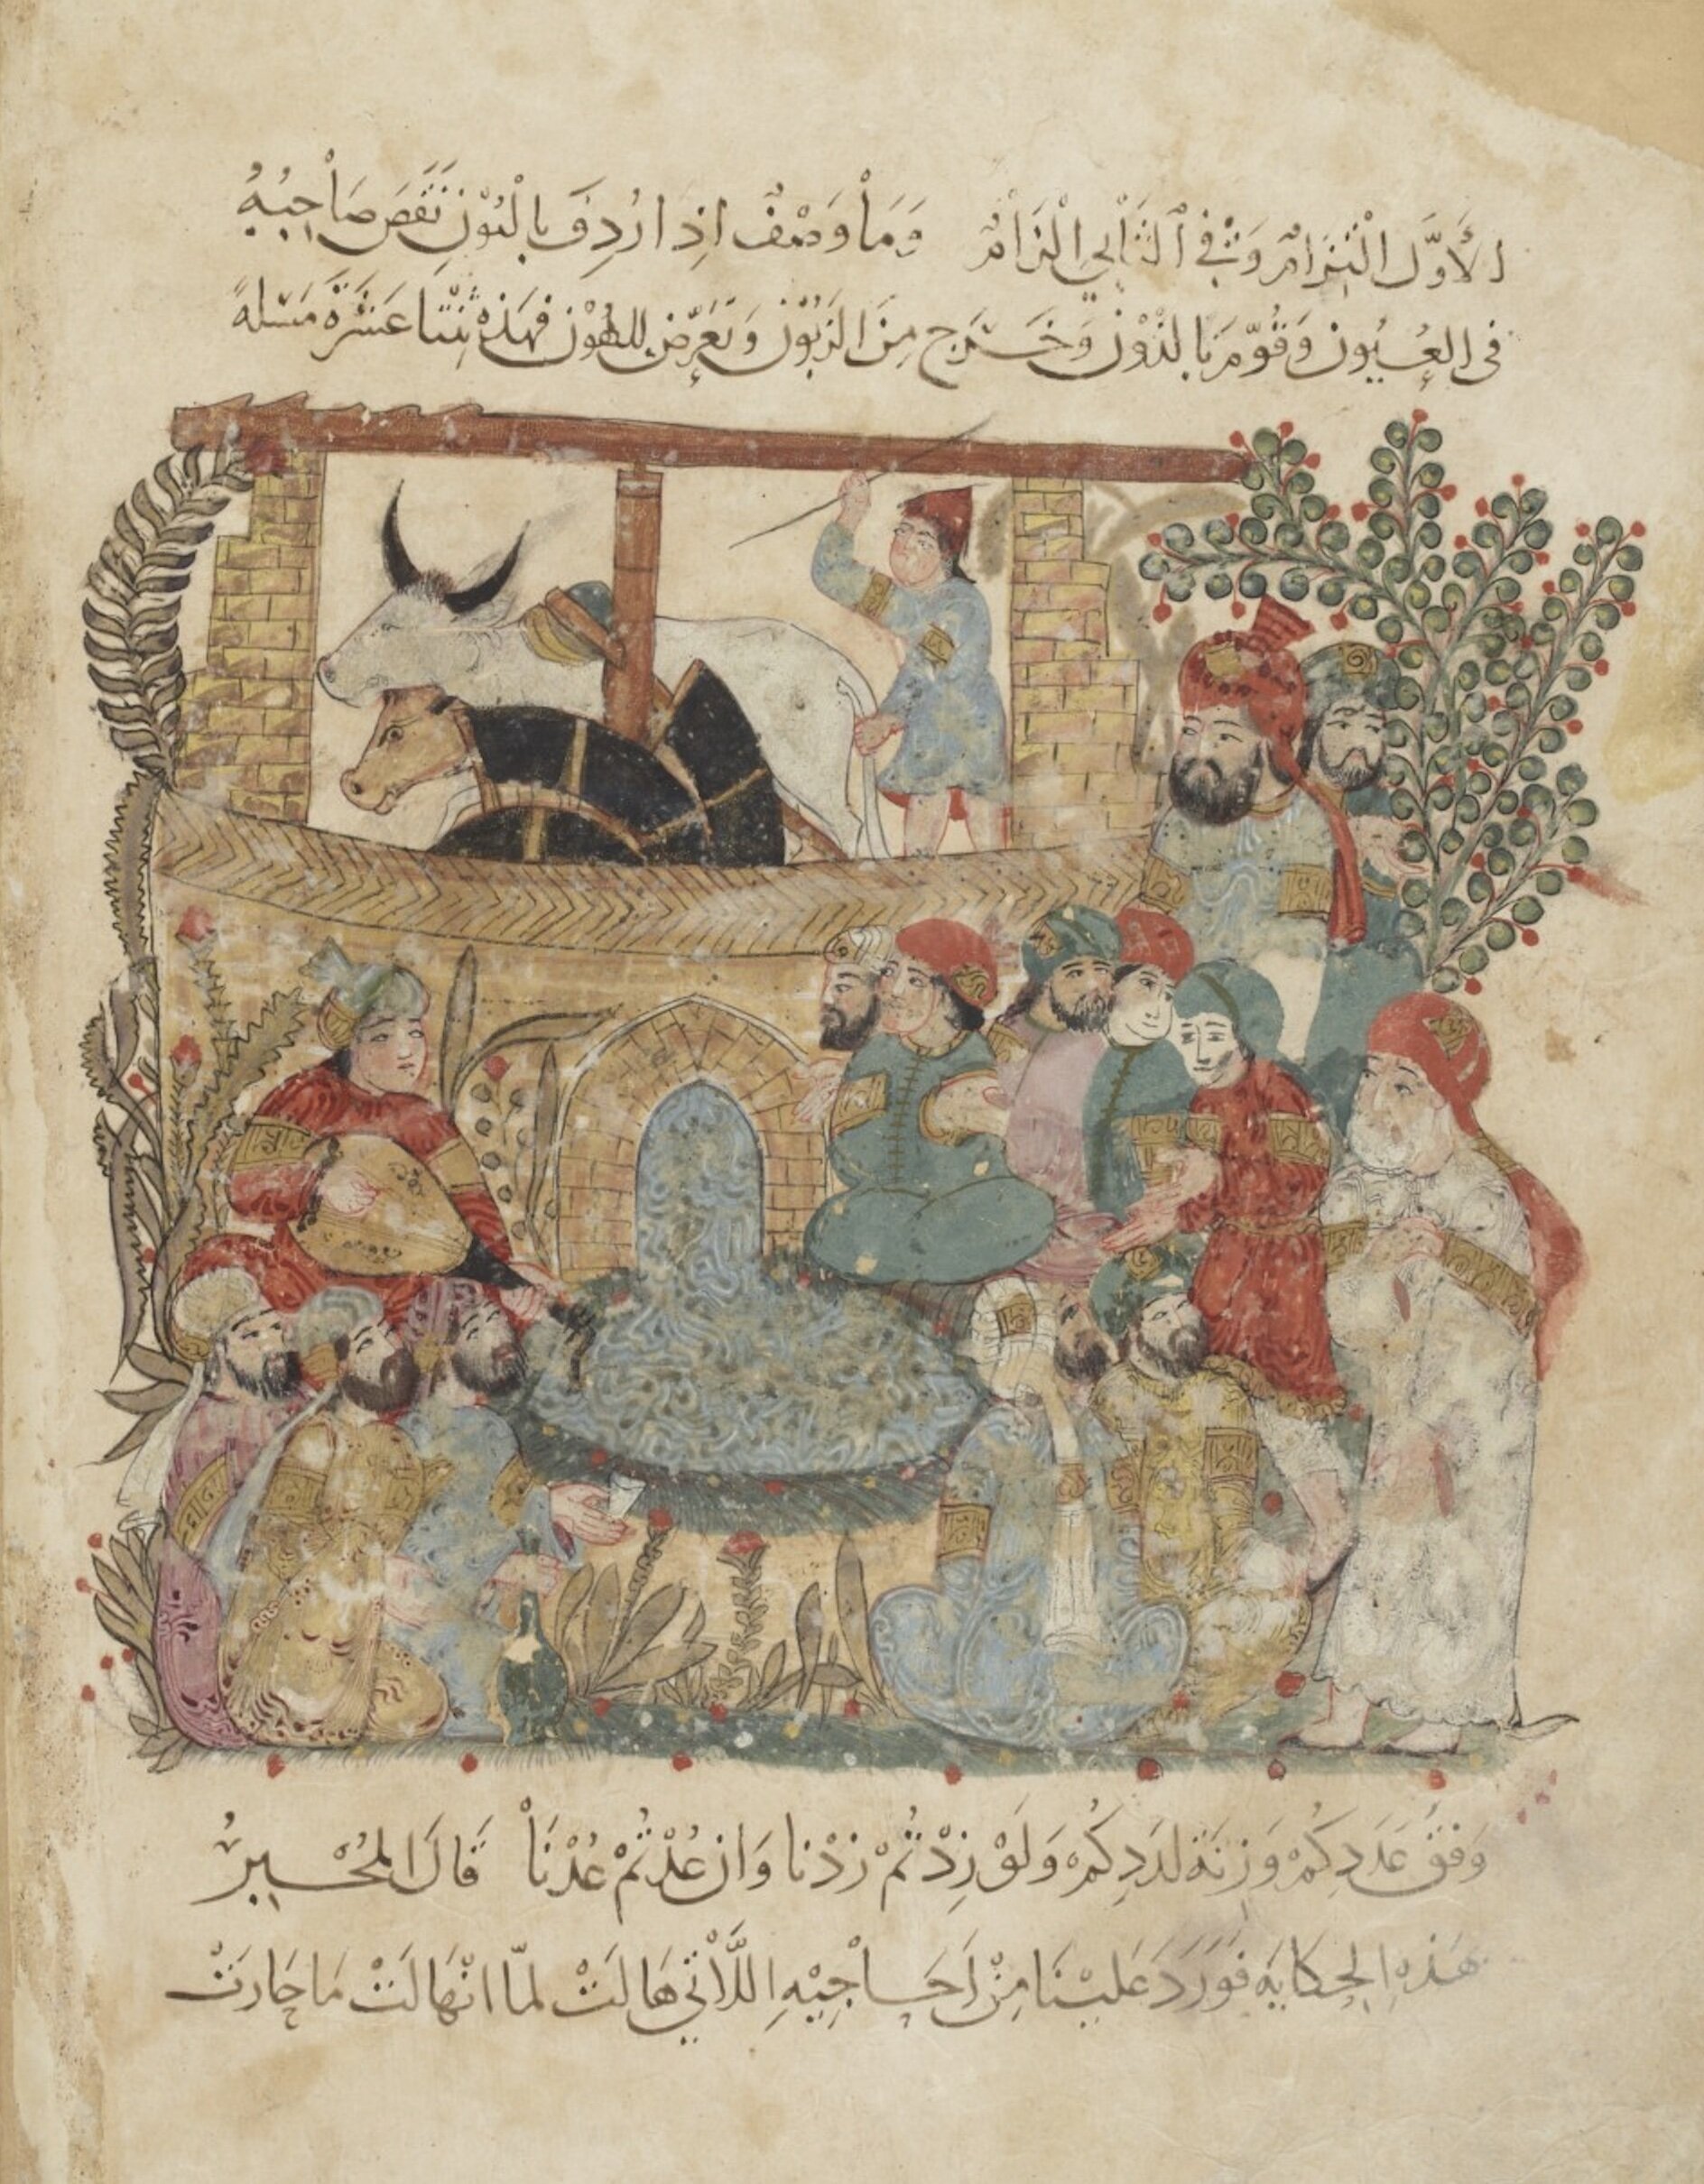 الأَوَّل الْتِزَامٌ وَفِي الثَّانِي الْزَامٌ وَمَا وَصْفٌ اِذَا اُرْدِفَ بِالنُوْنِ نَقَصَ صَاحِبُهُ
فِى العُيُونِ وَقُوِّمَ بالدُّوْنِ وَخَرَج مِنَ الزَبُوْنِ وَتَعَرَّضَ لِلهُوْنِ فَهَذِهْ ثِنْتَا عَشَرَةَ مَسْئَلةً
وَفقَ عَدَدِكُمْ وَزِنَةَ لَدَدِكُمْ وَلَوْ زِدْتُمْ زِدْنَا وَاِن عُدْتُمْ عُدْنَا قَالَ المُخْبِرُ
هَذِهِ الحِكايَهِ فَوَرَدَ عَلَيْنَا مِنْ اَحَاجِيْهِ اللَّاتِي هَالَتْ لمّا انْهَالَتْ مَا حَارَتْ